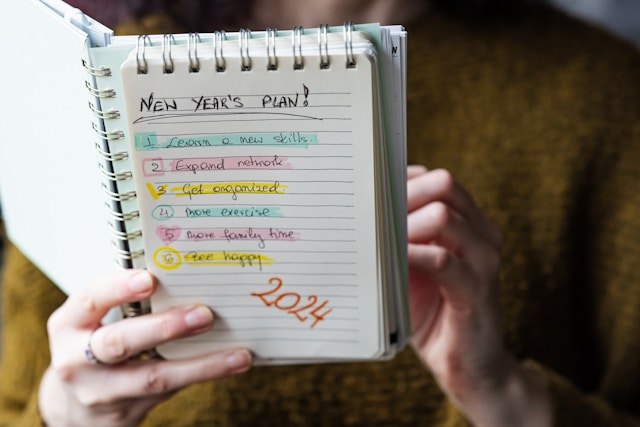 NEW YEAR'S PLAN!
1 Learn a new skills.
2 Expand network
3 Get organized
4 more exercise
5 more family time
6 Bee happy
2024